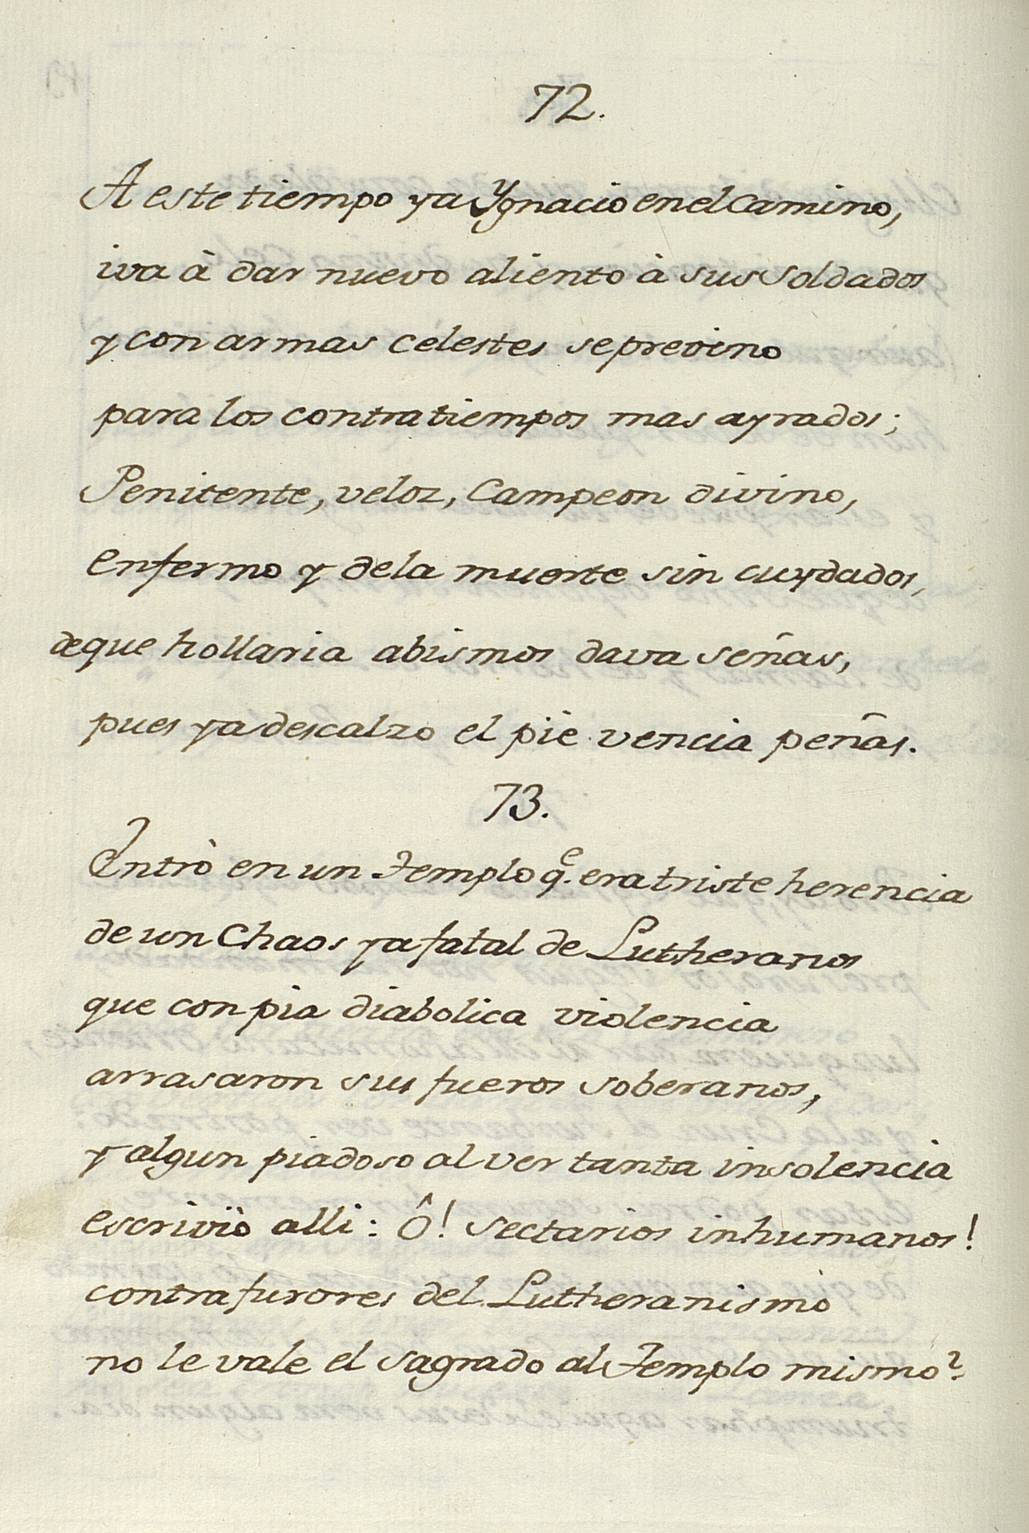 72.
A este tiempo ya Ygnacio en el camino,
iva à dar nuevo aliento à sus soldados
y con armas celestes se previno
para los contratiempos mas ayrados;
Penitente, veloz, Campeon divino,
enfermo y dela muerte sin cuydados,
de que hollaria abismos dava señas,
pues ya descalzo el pie vencia peñas.
73.
Entrò en un Templo q.e era triste herencia
de un Chaos ya fatal de Lutheranos
que con pia diabolica violencia
arrasaron sus fueros soberanos,
y algun piadoso al ver tanta insolencia
escriviò alli: Ô! sectarios inhumanos!
contra furores del Lutheranismo
no le vale el sagrado al Templo mismo?